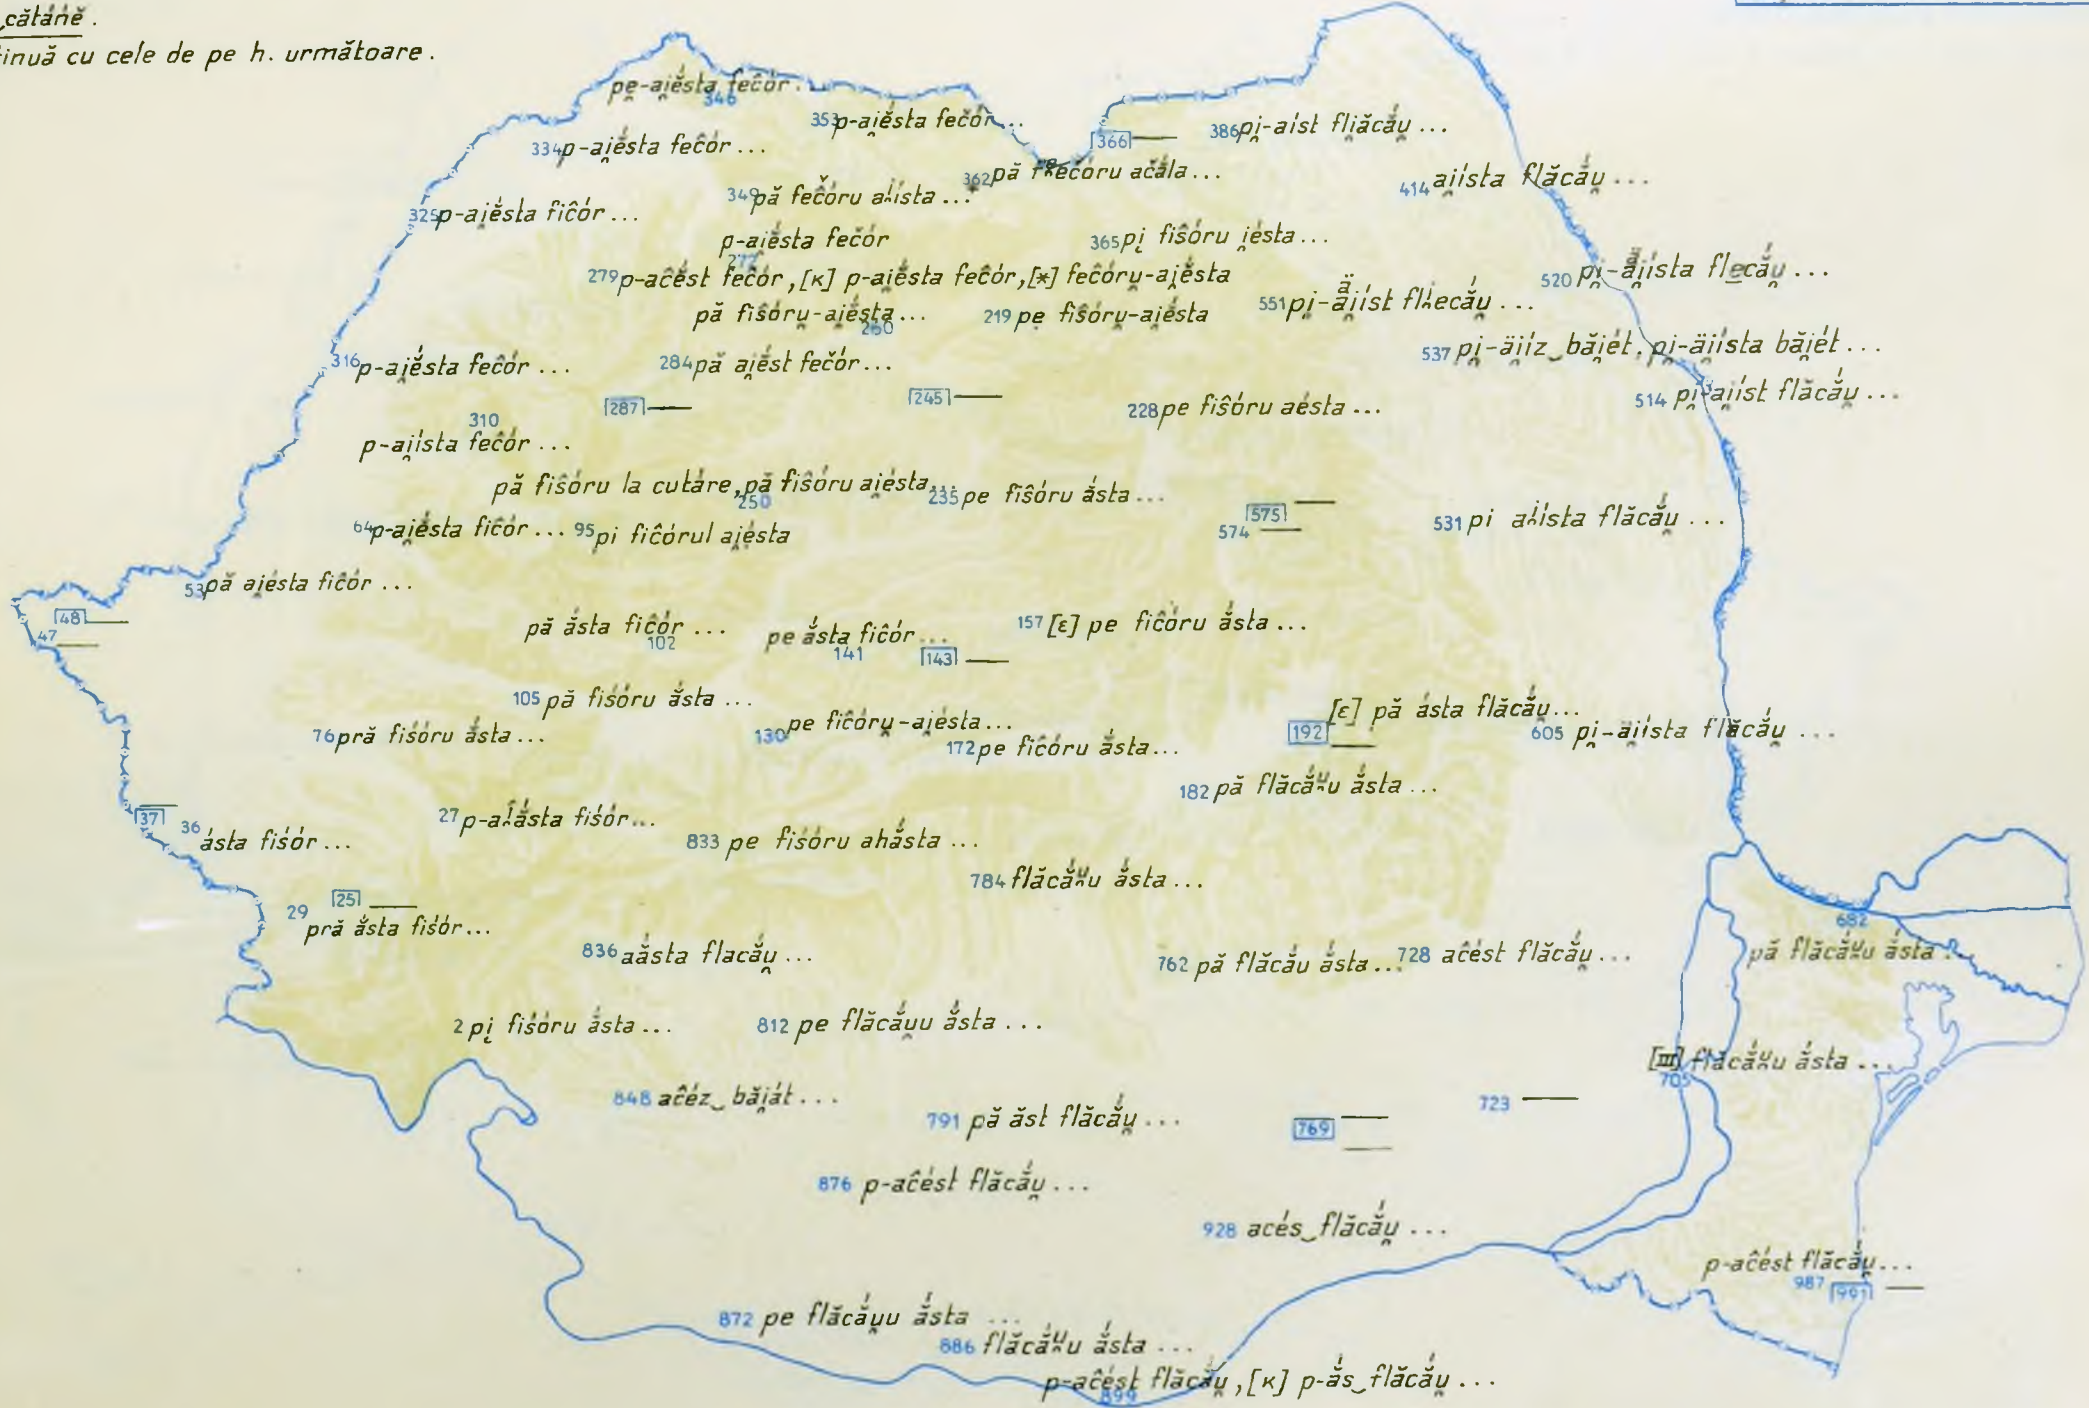 cătánĕ.
inuă cu cele de pe h. următoare.
pe-ai̯ésta fečór...
346
353 p-ai̯ésta fečór...
366 —
386 pi̯-aíst fli̯ăcắu̯...
334 p-ai̯ésta fečór...
362 pă fečóru ačála...
414 ai̯ísta flăcắu̯...
349 pă fečóru aísta...
325 p-ai̯ésta fičór...
p-ai̯ésta fečór
272
365 pi̯ fisóru i̯ésta...
279 p-ačést fečór, [κ] p-ai̯ésta fečór, [*] fečóru̯-ai̯ésta
520 pi̯-äi̯ísta flecắu̯...
pă fisóru̯-ai̯ésta...
260
219 pe fisóru̯-ai̯ésta
551 pi̯-äi̯íst flecắu̯...
537 pi̯-äi̯íz‿băi̯ét, pi̯-äi̯ísta băi̯ét...
316 p-ai̯ésta fečór...
284 pă ai̯ést fečór...
287 —
245 —
228 pe fisóru aésta...
514 pi̯-ai̯íst flăcắu̯...
310
p-ai̯ísta fečór...
pă fisóru la cutáre, pă fisóru ai̯ésta...
250
235 pe fisóru ásta...
575 —
574 —
531 pi aísta flăcắu̯...
64 p-ai̯ésta fičór...
95 pi fičórul ai̯ésta
53 pă ai̯ésta fičór...
48 —
47 —
pă ắsta fičór...
102
pe ắsta fičór...
141
143 —
157 [ε] pe fičóru ắsta...
105 pă fisóru ắsta...
76 pră fisóru ắsta...
130 pe fičóru̯-ai̯ésta...
172 pe fičóru ắsta...
[ε] pă ásta flăcắu̯...
192 —
605 pi̯-äi̯ísta flăcắu̯...
182 pă flăcắu̯u ắsta...
37 —
36 ásta fisór...
27 p-aắsta fisór...
833 pe fisóru ahắsta...
784 flăcắu̯u ắsta...
25 —
29 pră ắsta fisór...
836 aắsta flacắu̯...
762 pă flăcắu ắsta...
728 ačést flăcắu̯...
682
pă flăcắu̯u ắsta...
2 pi̯ fisóru ắsta...
812 pe flăcắu̯u ắsta...
[III] flăcắu̯u ắsta...
705
848 ačéz‿băi̯át...
791 pă ăst flăcắu̯...
769 —
—
723 —
876 p-ačést flăcắu̯...
928 acés‿flăcắu̯...
p-ačést flăcắu̯...
987 991 —
872 pe flăcắu̯u ắsta...
886 flăcắu̯u ắsta...
p-ačést flăcắu̯, [κ] p-ắs‿flăcắu̯...
899